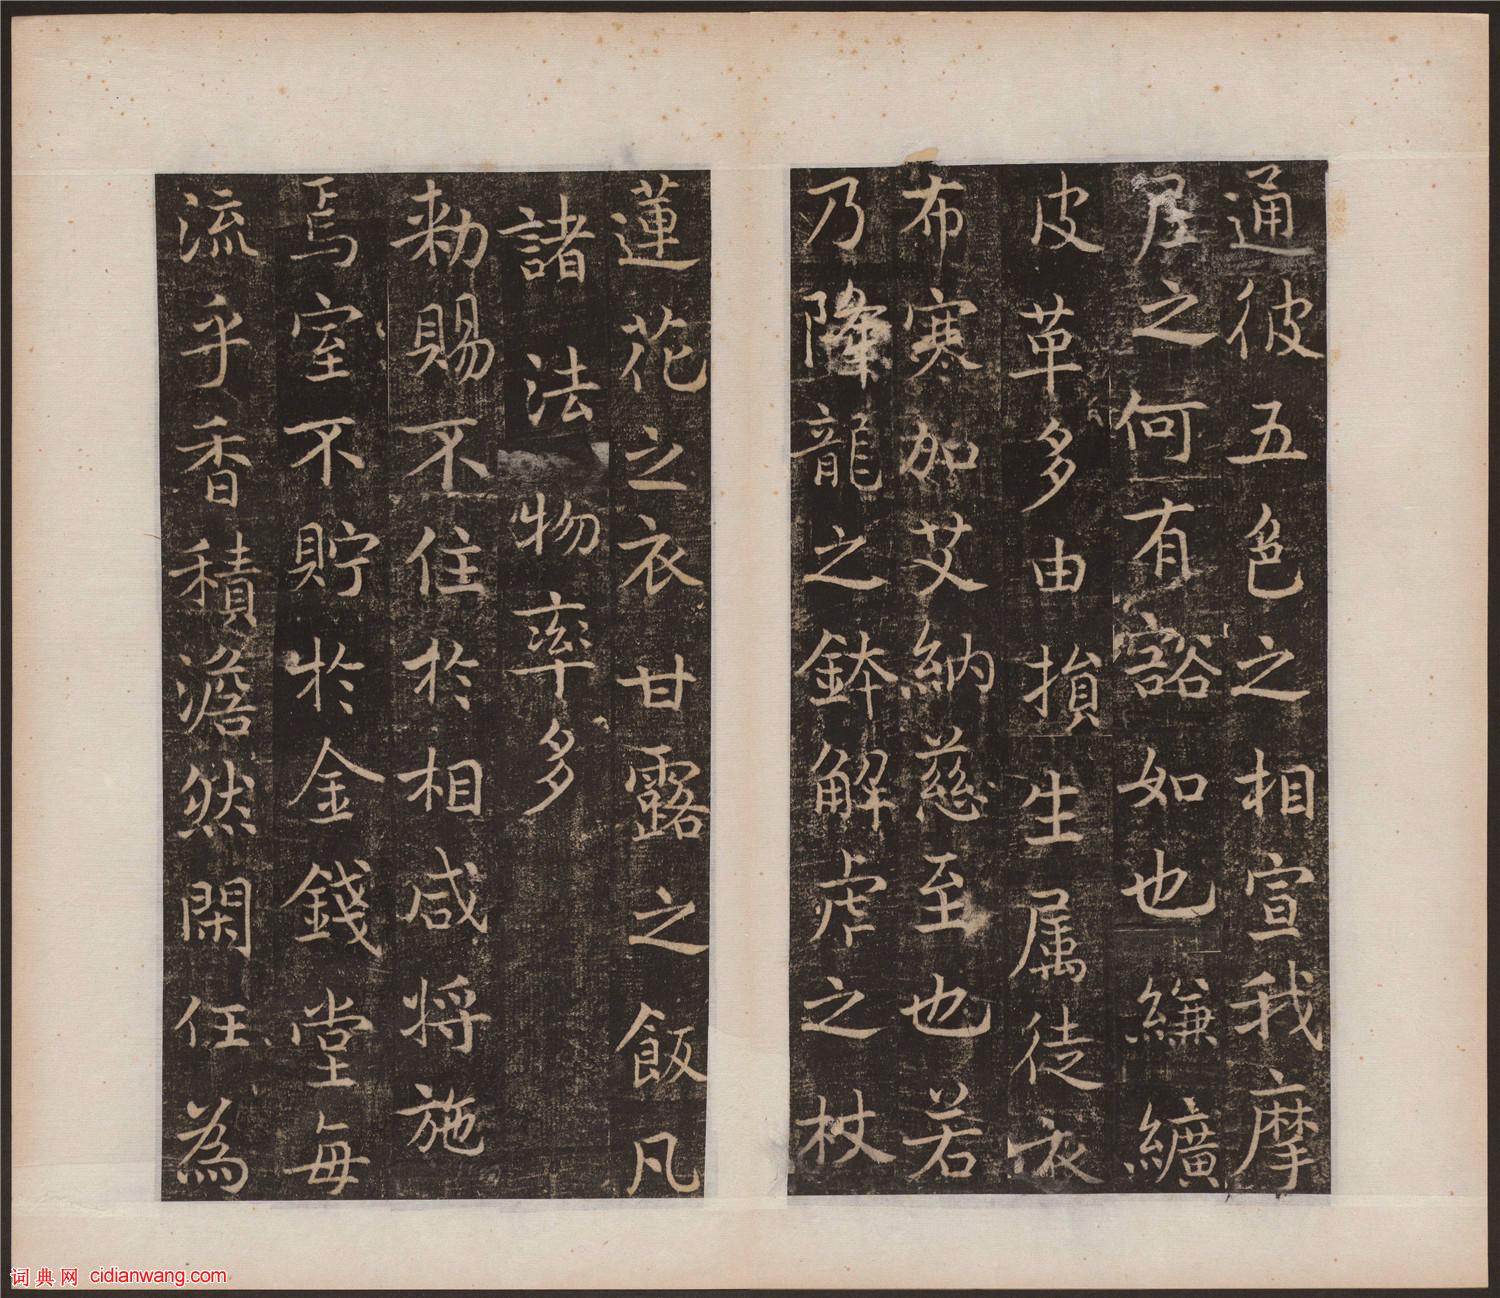 通彼五色之相宣我摩
尼之何有豁如也縑纊
皮革多由損生属徒衣
布寒加艾納慈至也若
乃降龍之鉢解虎之杖
蓮花之衣甘露之飯凡
諸法物率多
勅賜不住於相咸将施
焉室不貯於金錢堂每
流乎香積澹然閑任為
词典网 cidianwang.com